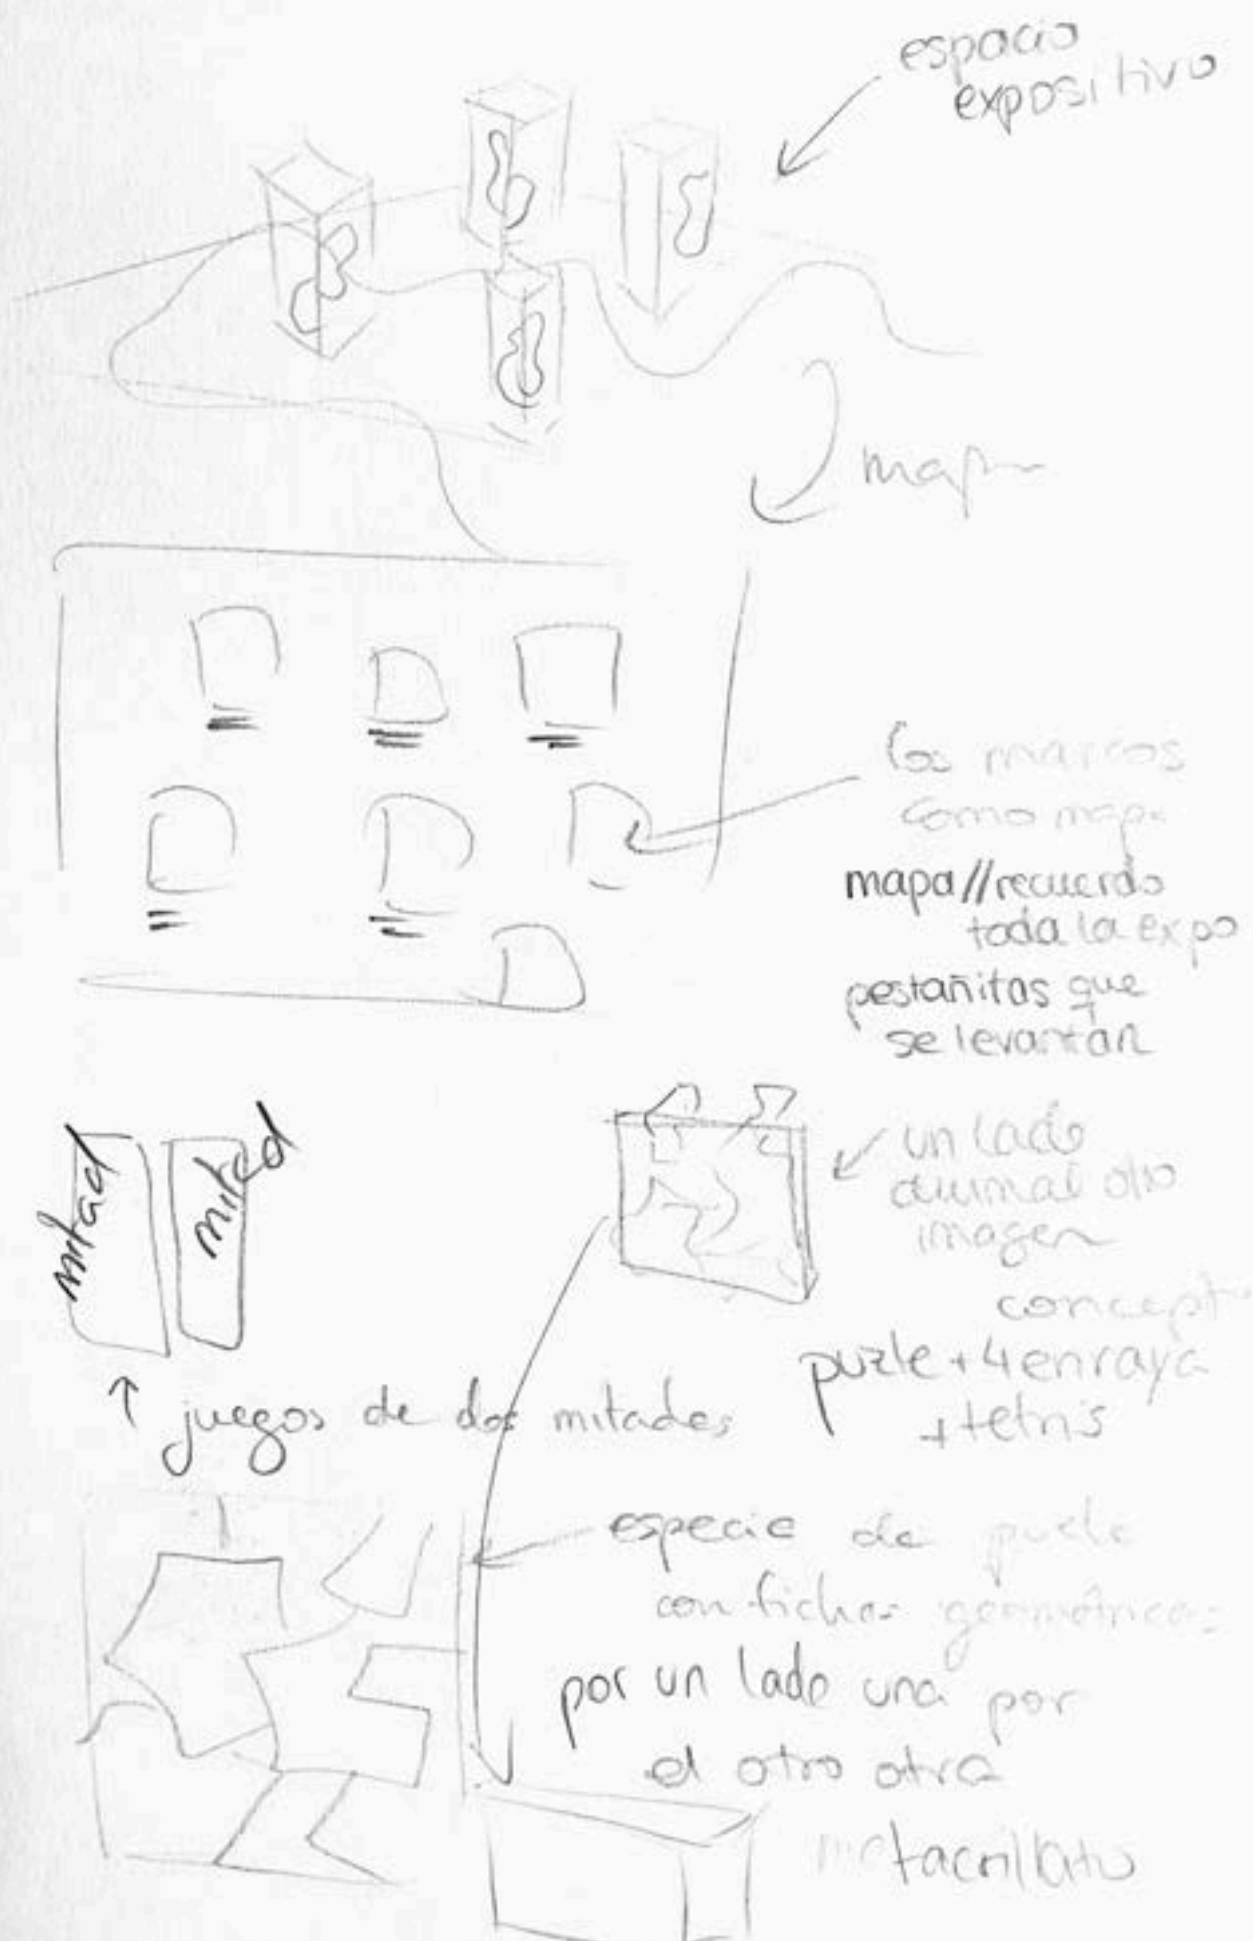 espacio
expositivo
mapa
los marcos
como mapa
mapa//recuerdo
toda la expo
pestañitas que
se levantan
mitad
mitad
un lado
animal otro
imagen
concepto
puzle + 4 en raya
+ tetris
juegos de dos mitades
especie de puzle
con fichas geométricas
por un lado una por
el otro otra
metacrillato